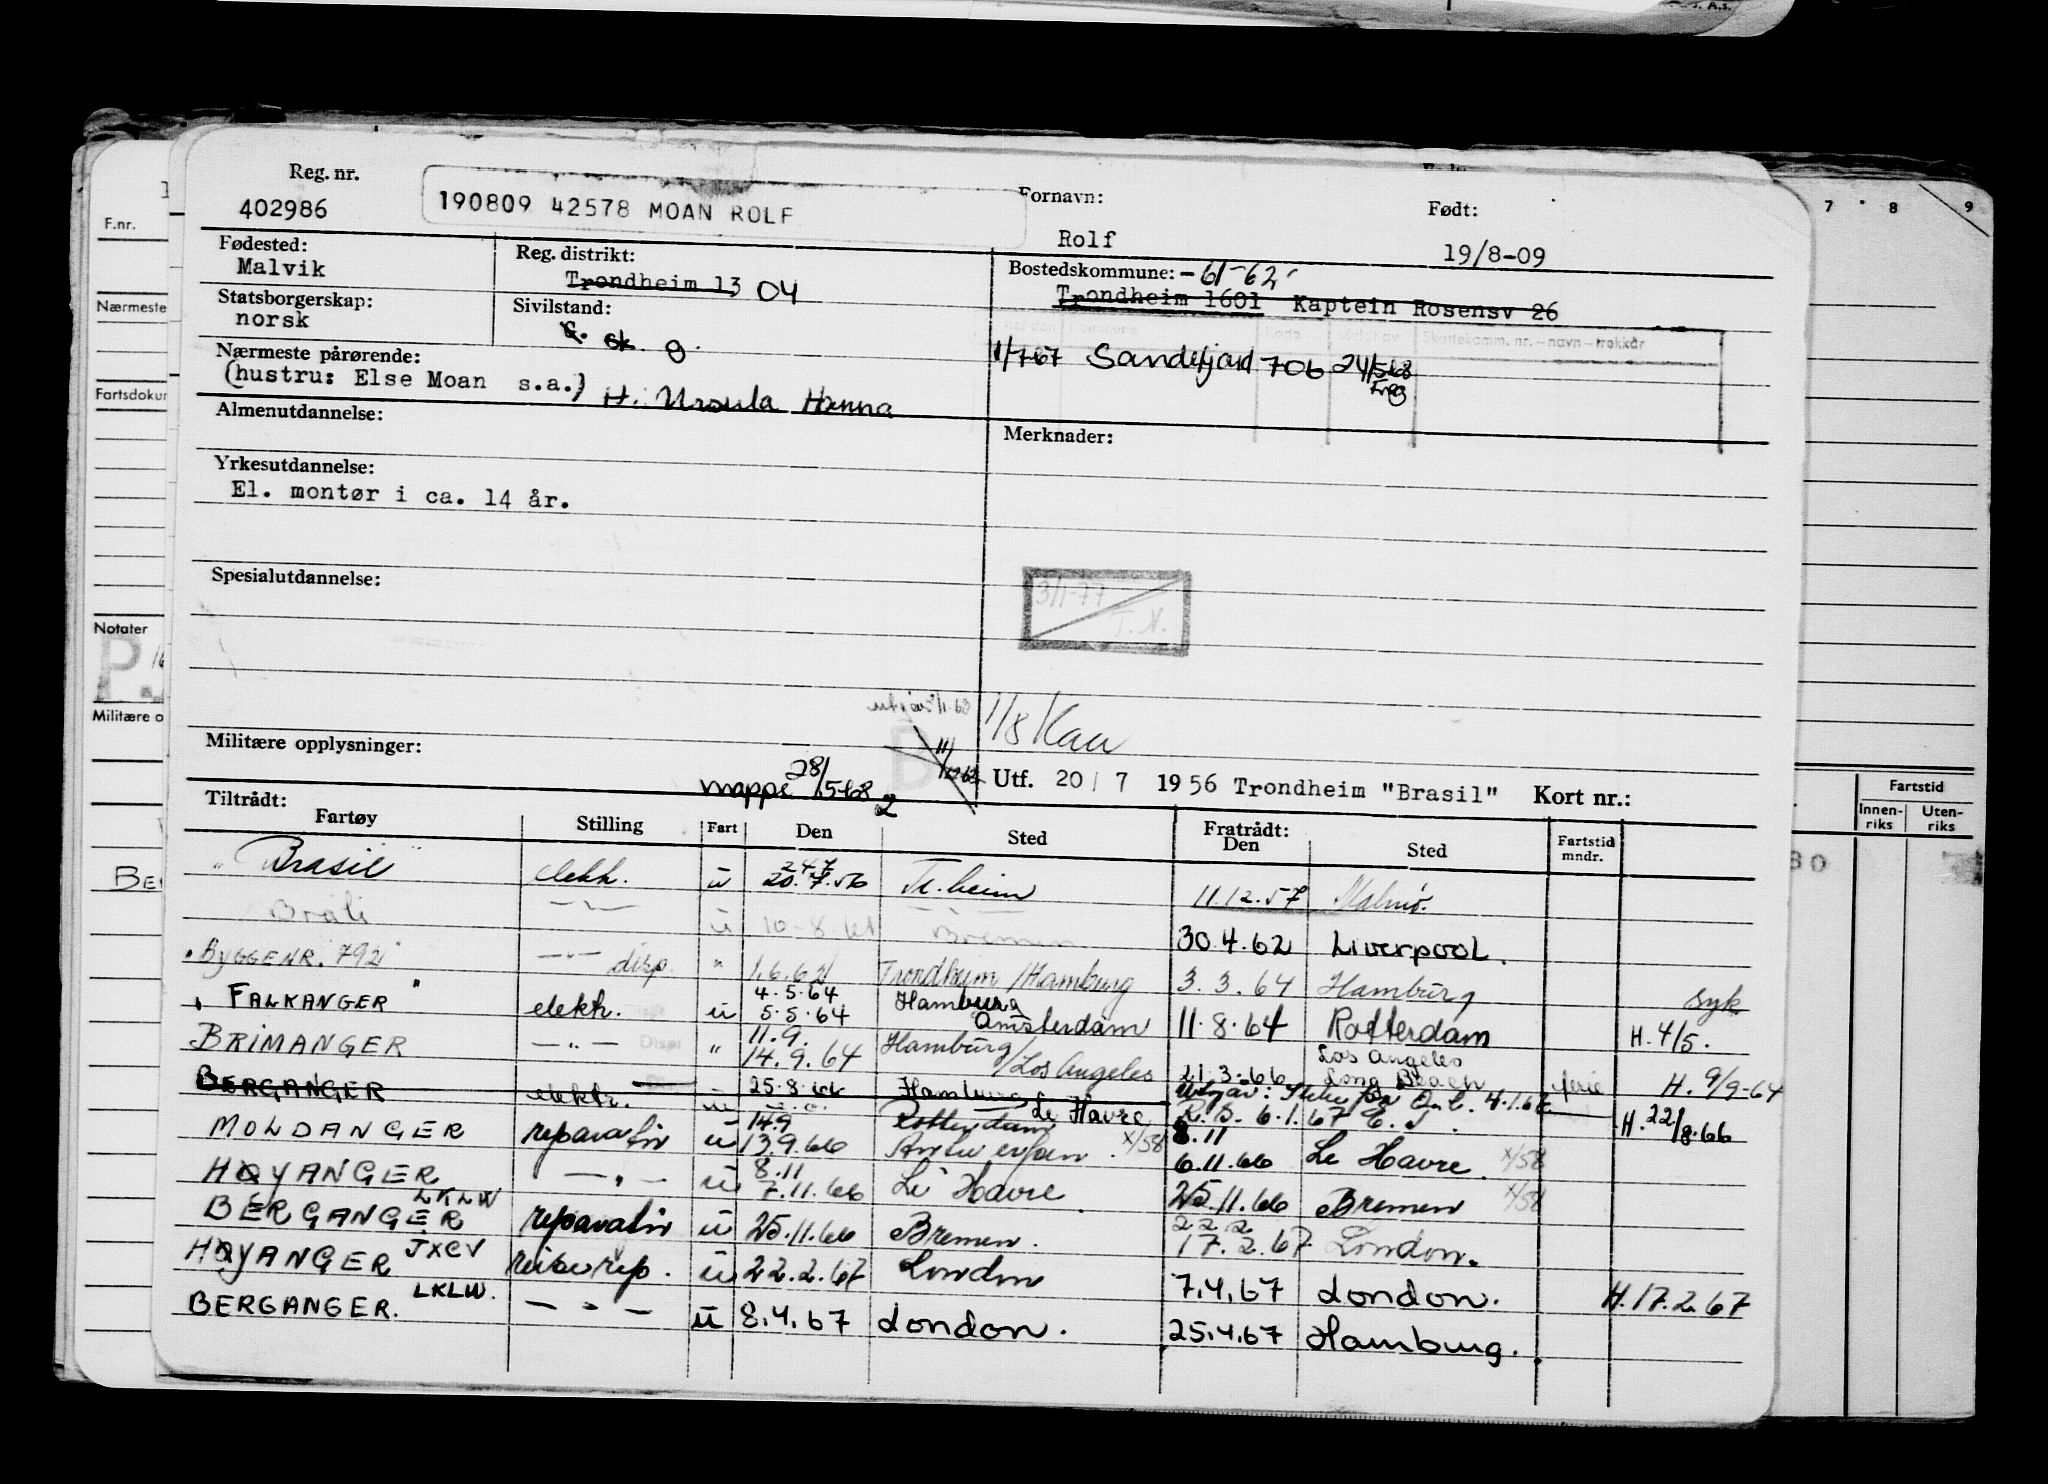 S. A.s.
Reg. nr.
402986
190809 42578 MOAN ROLF
Fornavn:
Rolf
Født:
19/8-09
7 8 9
F.nr.
Fødested:
Malvik
Reg. distrikt:
Trondheim 13 04
Bostedskommune: -61-62
Trondheim 1601 Kaptein Rosensv 26
Statsborgerskap:
norsk
Sivilstand:
G. sk. g
Nærmeste
Nærmeste pårørende:
(hustru: Else Moan s.a.) H. Ursula Hanna
1/7-67 Sandefjord 706 24/5-68
Fartsdokur
Almenutdannelse:
Merknader:
Yrkesutdannelse:
El. montør i ca. 14 år.
Spesialutdannelse:
3/1-77
T.N.
Notater
P.
Militære o
1/8 Kau
Militære opplysninger:
mappe 28/5-68 2
Utf. 20/7 1956 Trondheim "Brasil" Kort nr.:
Fartstid
Innen-
riks
Uten-
riks
Tiltrådt:
Fartøy Stilling Fart Den Sted
Fratrådt:
Den Sted Fartstid
mndr.
"Brasil" elekh. u 24.7
20.7.56 Tr.heim 11.12.57 Malmø.
Brali —"— u 10-8-61 Bremen 30.4.62 Liverpool.
"BYGGENR. 792" —"— disp. " 1.6.62 Trondheim/Hamburg 3.3.64 Hamburg syk
"FALKANGER" elektr. u 4.5.64
5.5.64 Hamburg
Amsterdam 11.8.64 Rotterdam H. 4/5.
BRIMANGER —"— " 11.9.
14.9.64 Hamburg/Los Angeles 21.3.66 Los Angeles
Long Beach ferie H. 9/9-64
BERGANGER elektr. u 25.8.66 Hamburg Le Havre H. 22/8.66
R.B. 6.1.67 E.J.
MOLDANGER reparatør u 14.9
13.9.66 Rotterdam
Antwerpen. x/58 8.11
6.11.66 Le Havre. x/58
HØYANGER —"— u 8.11
7.11.66 Le Havre. 25.11.66 Bremen x/58
BERGANGER LKLW reparatør u 25.11.66 Bremen. 22.2
17.2.67 London.
HØYANGER JXCV reiserep. u 22.2.67 London 7.4.67 London. H. 17.2.67
BERGANGER. LKLW. —"— u 8.4.67 London. 25.4.67 Hamburg.